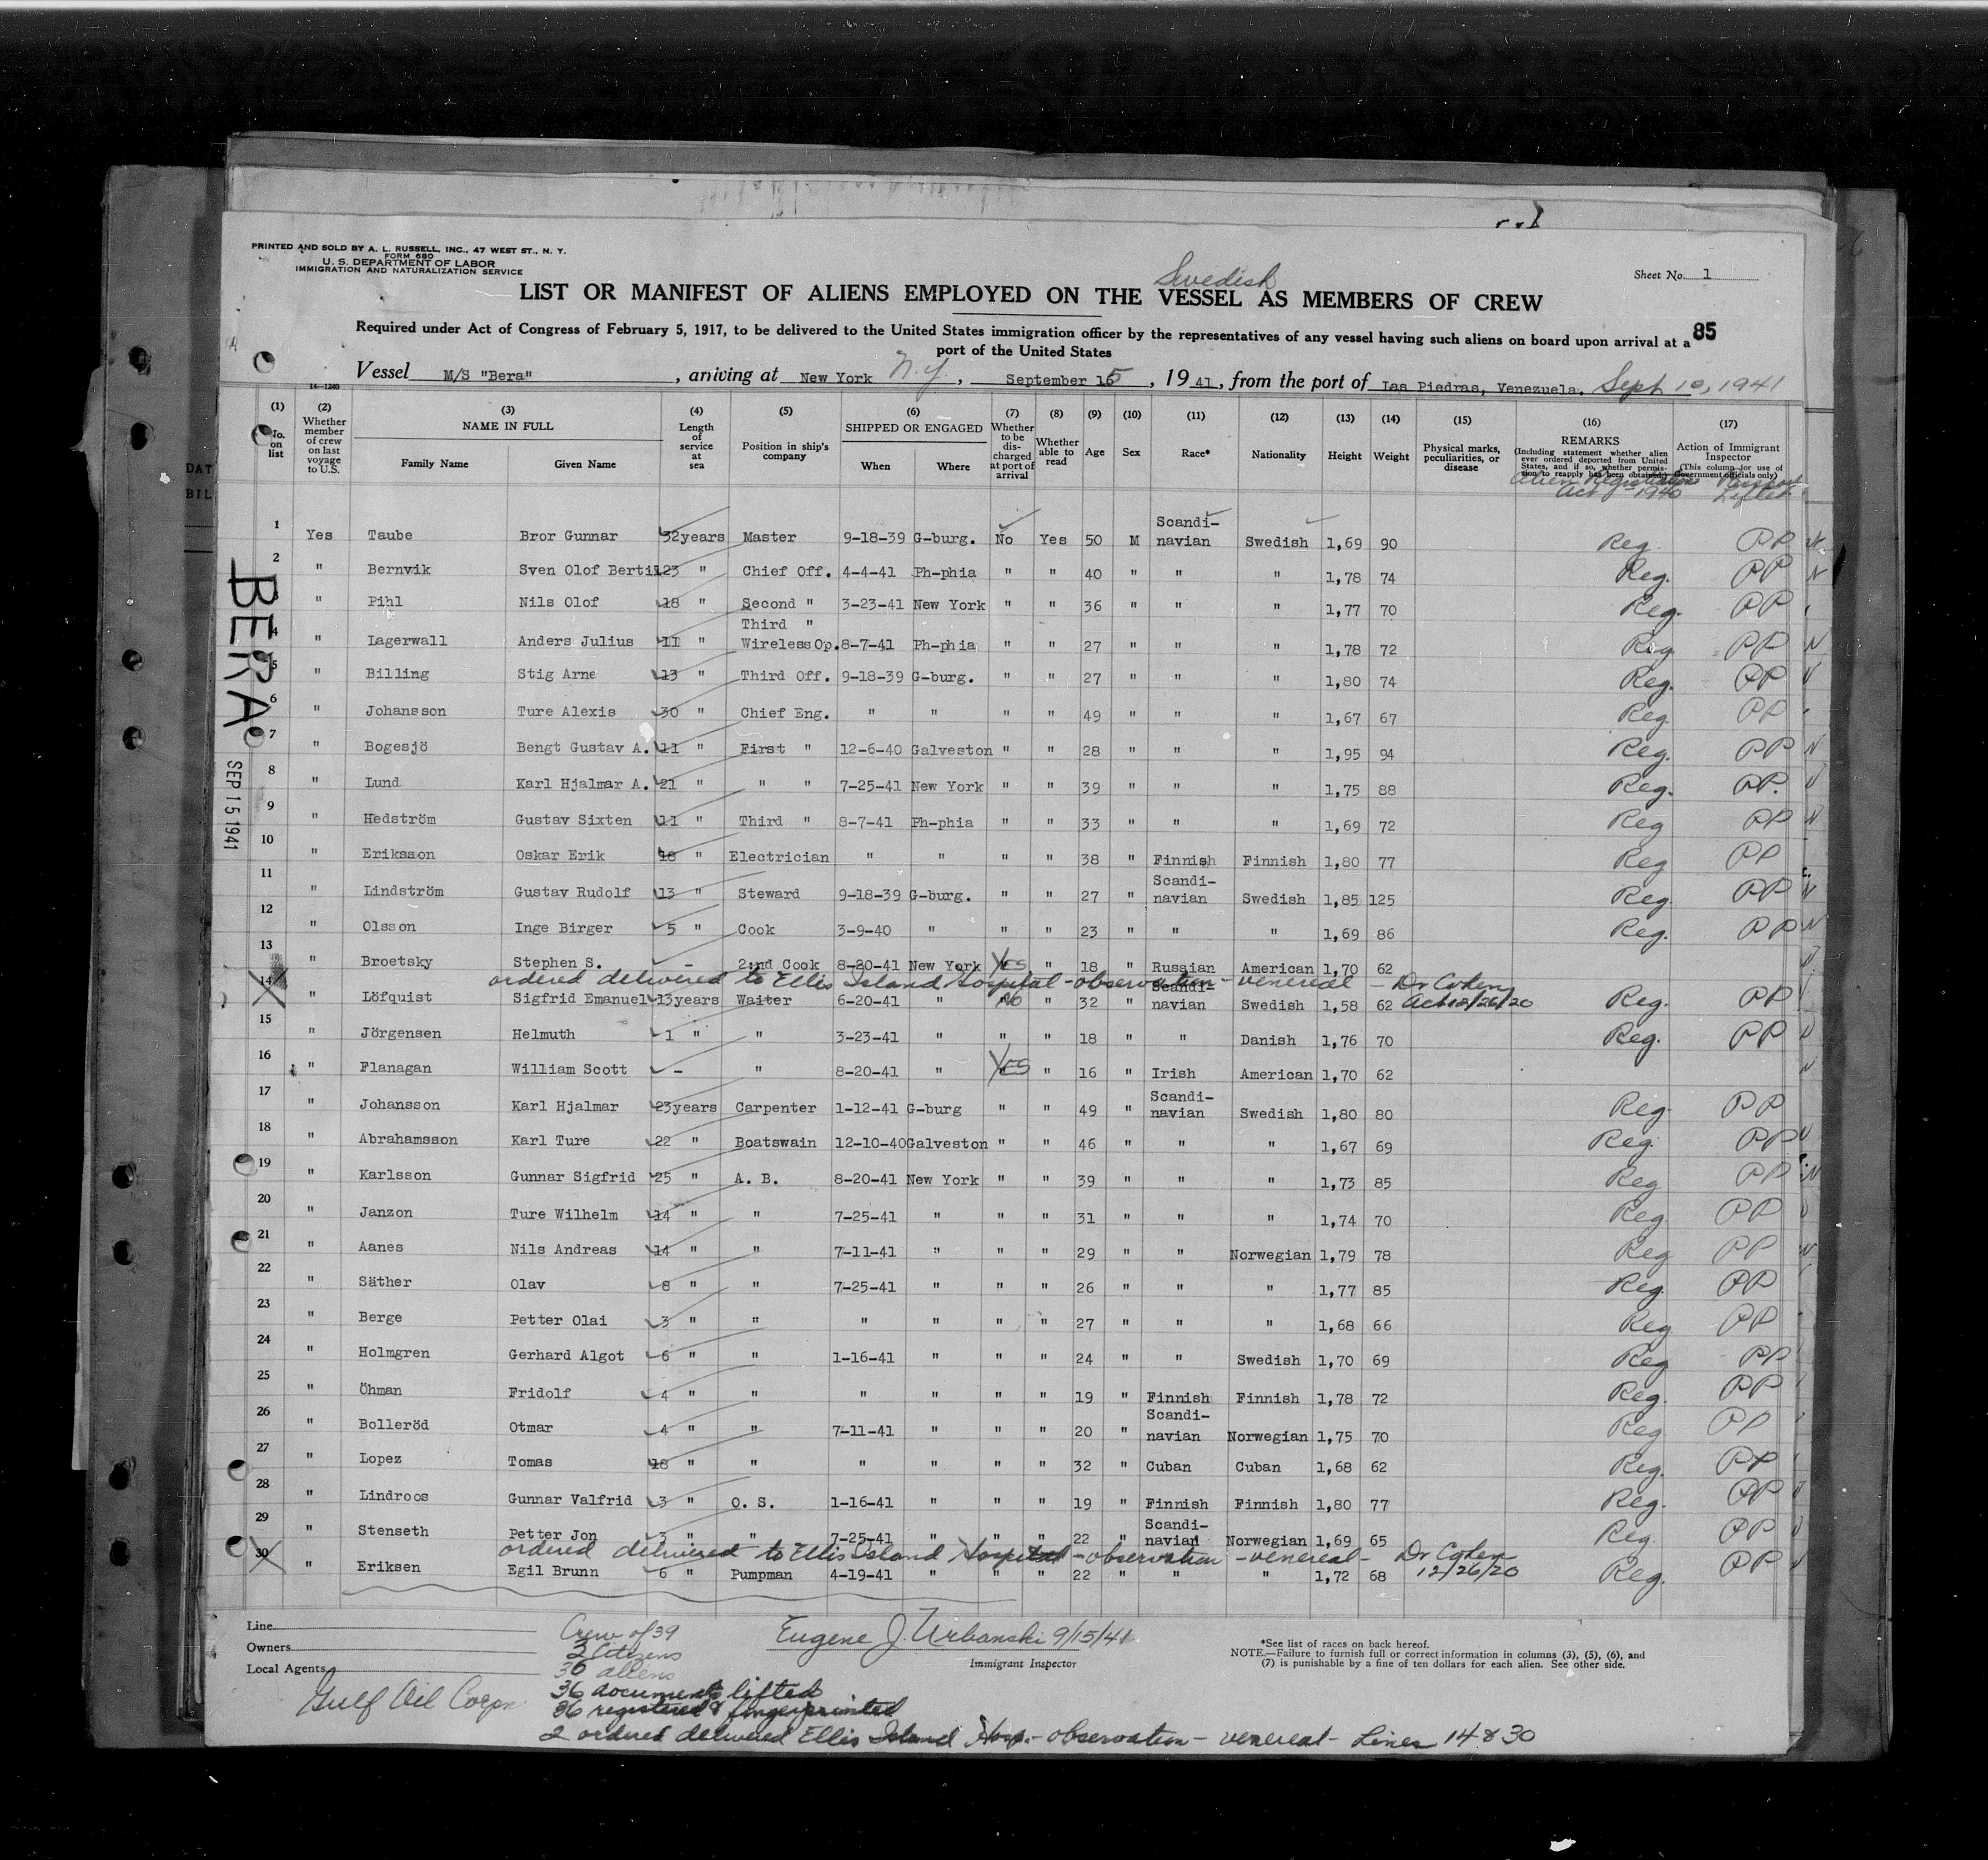 PRINTED AND SOLD BY A. L. RUSSELL, INC., 47 WEST ST., N. Y.
FORM 680
U. S. DEPARTMENT OF LABOR
IMMIGRATION AND NATURALIZATION SERVICE
Sheet No. 1
Swedish
LIST OR MANIFEST OF ALIENS EMPLOYED ON THE VESSEL AS MEMBERS OF CREW
Required under Act of Congress of February 5, 1917, to be delivered to the United States immigration officer by the representatives of any vessel having such aliens on board upon arrival at a
port of the United States
85
Vessel M/S "Bera", arriving at New York N.Y., September 15, 1941, from the port of Las Piedras, Venezuela. Sept 10, 1941
14-1240
(1) No. on list (2) Whether member of crew on last voyage to U.S. (3) NAME IN FULL Family Name Given Name (4) Length of service at sea (5) Position in ship's company (6) SHIPPED OR ENGAGED When Where (7) Whether to be discharged at port of arrival (8) Whether able to read (9) Age (10) Sex (11) Race* (12) Nationality (13) Height (14) Weight (15) Physical marks, peculiarities, or disease (16) REMARKS (Including statement whether alien ever ordered deported from United States, and if so, whether permission to reapply has been obtained.) (17) Action of Immigrant Inspector (This column for use of Government officials only)
Alien Registration Act 1940 Passport Lifted
1 Yes Taube Bror Gunnar 32years Master 9-18-39 G-burg. No Yes 50 M Scandi-navian Swedish 1,69 90 Reg. PP
2 " Bernvik Sven Olof Bertil 23 " Chief Off. 4-4-41 Ph-phia " " 40 " " " 1,78 74 Reg. PP
" Pihl Nils Olof 18 " Second " 3-23-41 New York " " 36 " " " 1,77 70 Reg. PP
4 " Lagerwall Anders Julius 11 " Third " Wireless Op. 8-7-41 Ph-phia " " 27 " " " 1,78 72 Reg PP
5 " Billing Stig Arne 13 " Third Off. 9-18-39 G-burg. " " 27 " " " 1,80 74 Reg. PP
6 " Johansson Ture Alexis 30 " Chief Eng. " " " " 49 " " " 1,67 67 Reg PP
7 " Bogesjö Bengt Gustav A. 11 " First " 12-6-40 Galveston " " 28 " " " 1,95 94 Reg. PP
8 " Lund Karl Hjalmar A. 21 " " " 7-25-41 New York " " 39 " " " 1,75 88 Reg. PP.
9 " Hedström Gustav Sixten 11 " Third " 8-7-41 Ph-phia " " 33 " " " 1,69 72 Reg PP
10 " Eriksson Oskar Erik 18 " Electrician " " " " 38 " Finnish Finnish 1,80 77 Reg PP
11 " Lindström Gustav Rudolf 13 " Steward 9-18-39 G-burg. " " 27 " Scandi-navian Swedish 1,85 125 Reg. PP
12 " Olsson Inge Birger 5 " Cook 3-9-40 " " " 23 " " " 1,69 86 Reg. PP
13 " Broetsky Stephen S. - 2:nd Cook 8-20-41 New York YES " 18 " Russian American 1,70 62
ordered delivered to Ellis Island Hospital - observation - venereal - Dr Cohen
14 " Löfquist Sigfrid Emanuel 13years Waiter 6-20-41 " No " 32 " Scandi-navian Swedish 1,58 62 Act 12/26/20 Reg. PP
15 " Jörgensen Helmuth 1 " " 3-23-41 " " " 18 " " Danish 1,76 70 Reg. PP
16 " Flanagan William Scott - " 8-20-41 " YES " 16 " Irish American 1,70 62
17 " Johansson Karl Hjalmar 23years Carpenter 1-12-41 G-burg " " 49 " Scandi-navian Swedish 1,80 80 Reg PP
18 " Abrahamsson Karl Ture 22 " Boatswain 12-10-40 Galveston " " 46 " " " 1,67 69 Reg. PP
19 " Karlsson Gunnar Sigfrid 25 " A. B. 8-20-41 New York " " 39 " " " 1,73 85 Reg PP
20 " Janzon Ture Wilhelm 14 " " 7-25-41 " " " 31 " " " 1,74 70 Reg PP
21 " Aanes Nils Andreas 14 " " 7-11-41 " " " 29 " " Norwegian 1,79 78 Reg PP
22 " Säther Olav 8 " " 7-25-41 " " " 26 " " " 1,77 85 Reg. PP
23 " Berge Petter Olai 3 " " " " " " 27 " " " 1,68 66 Reg PP
24 " Holmgren Gerhard Algot 6 " " 1-16-41 " " " 24 " " Swedish 1,70 69 Reg PP
25 " Öhman Fridolf 4 " " " " " " 19 " Finnish Finnish 1,78 72 Reg. PP
26 " Bolleröd Otmar 4 " " 7-11-41 " " " 20 " Scandi-navian Norwegian 1,75 70 Reg PP
27 " Lopez Tomas 18 " " " " " " 32 " Cuban Cuban 1,68 62 Reg. PP
28 " Lindroos Gunnar Valfrid 3 " O. S. 1-16-41 " " " 19 " Finnish Finnish 1,80 77 Reg. PP
29 " Stenseth Petter Jon 3 " " 7-25-41 " " " 22 " Scandi-navian Norwegian 1,69 65 Reg. PP
ordered delivered to Ellis Island Hospital - observation - venereal - Dr Cohen
30 " Eriksen Egil Brunn 6 " Pumpman 4-19-41 " " " 22 " " " 1,72 68 12/26/20 Reg. PP
BERA
SEP 15 1941
Line
Owners
Local Agents
Gulf Oil Corpn.
Crew of 39
3 Citizens
36 aliens
36 documents lifted
36 registered & fingerprinted
2 ordered delivered Ellis Island Hosp. - observation - venereal - Lines 14 & 30
Eugene J. Urbanski 9/15/41
Immigrant Inspector
*See list of races on back hereof.
NOTE.—Failure to furnish full or correct information in columns (3), (5), (6), and
(7) is punishable by a fine of ten dollars for each alien. See other side.
DAT
BIL